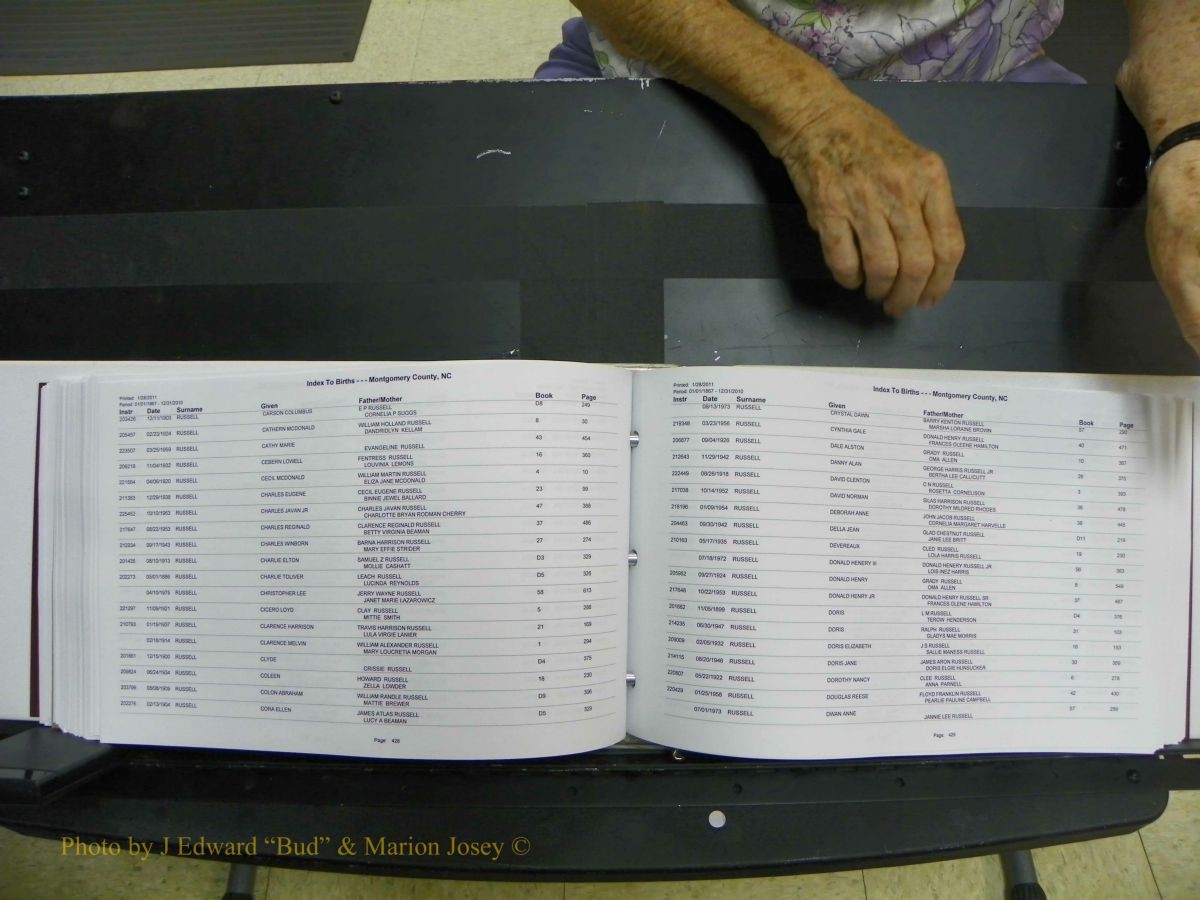 Index To Births - - - Montgomery County, NC
Printed: 1/28/2011
Period: 01/01/1867 - 12/31/2010
Instr Date Surname Given Father/Mother Book Page
203426 12/11/1903 RUSSELL CARSON COLUMBUS E P RUSSELL D8 249
CORNELIA P SUGGS
205457 02/23/1924 RUSSELL CATHERN MCDONALD WILLIAM HOLLAND RUSSELL 8 30
DANDRIDLYN KELLAM
223507 03/25/1959 RUSSELL CATHY MARIE 43 454
EVANGELINE RUSSELL
209218 11/04/1932 RUSSELL CEBERN LOWELL FENTRESS RUSSELL 16 360
LOUVINIA LEMONS
221584 04/06/1920 RUSSELL CECIL MCDONALD WILLIAM MARTIN RUSSELL 4 10
ELIZA JANE MCDONALD
211383 12/29/1938 RUSSELL CHARLES EUGENE CECIL EUGENE RUSSELL 23 99
BINNIE JEWEL BALLARD
225452 10/10/1963 RUSSELL CHARLES JAVAN JR CHARLES JAVAN RUSSELL 47 388
CHARLOTTE BRYAN RODMAN CHERRY
217647 08/22/1953 RUSSELL CHARLES REGINALD CLARENCE REGINALD RUSSELL 37 486
BETTY VIRGINIA BEAMAN
212934 09/17/1943 RUSSELL CHARLES WINBORN BARNA HARRISON RUSSELL 27 274
MARY EFFIE STRIDER
201426 08/10/1913 RUSSELL CHARLIE ELTON SAMUEL Z RUSSELL D3 329
MOLLIE CASHATT
202273 RUSSELL CHARLIE TOLIVER LEACH RUSSELL D5 326
LUCINDA REYNOLDS
04/10/1976 RUSSELL CHRISTOPHER LEE JERRY WAYNE RUSSELL 58 613
JANET MARIE LAZAROWICZ
221297 11/09/1921 RUSSELL CICERO LOYD CLAY RUSSELL 5 288
MITTIE SMITH
210793 01/19/1937 RUSSELL CLARENCE HARRISON TRAVIS HARRISON RUSSELL 21 169
LULA VIRGIE LANIER
02/18/1914 RUSSELL CLARENCE MELVIN WILLIAM ALEXANDER RUSSELL 1 294
MARY LOUCRETIA MORGAN
201881 12/15/1900 RUSSELL CLYDE D4 375
CRISSIE RUSSELL
209824 06/24/1934 RUSSELL COLEEN HOWARD RUSSELL 18 230
ZELLA LOWDER
203799 RUSSELL COLON ABRAHAM WILLIAM RANDLE RUSSELL D9 306
MATTIE BREWER
202376 02/13/1904 RUSSELL CORA ELLEN JAMES ATLAS RUSSELL D5 329
LUCY A BEAMAN
Page: 428
Index To Births - - - Montgomery County, NC
Printed: 1/28/2011
Period: 01/01/1867 - 12/31/2010
Instr Date Surname Given Father/Mother Book Page
08/13/1973 RUSSELL CRYSTAL DAWN BARRY KENTON RUSSELL 57 290
MARSHA LORAINE BROWN
219348 03/23/1956 RUSSELL CYNTHIA GALE DONALD HENERY RUSSELL 40 471
FRANCES OLEENE HAMILTON
206677 09/04/1926 RUSSELL DALE ALSTON GRADY RUSSELL 10 367
OMA ALLEN
212643 11/29/1942 RUSSELL DANNY ALAN GEORGE HARRIS RUSSELL JR 26 375
BERTHA LEE CALLICUTT
222449 08/26/1918 RUSSELL DAVID CLENTON C N RUSSELL 3 193
ROSETTA CORNELISON
217038 10/14/1952 RUSSELL DAVID NORMAN SILAS HARRISON RUSSELL 36 478
DOROTHY MILDRED RHODES
218196 01/09/1954 RUSSELL DEBORAH ANNE JOHN JACOB RUSSELL 38 448
CORNELIA MARGARET HARVELLE
204463 09/30/1942 RUSSELL DELLA JEAN GLAD CHESTNUT RUSSELL D11 219
JANIE LEE BRITT
210163 05/17/1935 RUSSELL DEVEREAUX CLED RUSSELL 19 230
LOLA HARRIS RUSSELL
07/18/1972 RUSSELL DONALD HENERY III DONALD HENERY RUSSELL JR 56 363
LOIS INEZ HARRIS
205952 09/27/1924 RUSSELL DONALD HENRY GRADY RUSSELL 8 549
OMA ALLEN
217646 10/22/1953 RUSSELL DONALD HENRY JR DONALD HENERY RUSSELL SR 37 487
FRANCES OLENE HAMILTON
201882 11/05/1899 RUSSELL DORIS L M RUSSELL D4 376
TEROW HENDERSON
214235 06/30/1947 RUSSELL DORIS RALPH RUSSELL 31 103
GLADYS MAE MORRIS
209009 02/05/1932 RUSSELL DORIS ELIZABETH J S RUSSELL 16 153
SALLIE MANESS RUSSELL
214115 06/20/1946 RUSSELL DORIS JANE JAMES ARON RUSSELL 30 369
DORIS ELGIE HUNSUCKER
220807 05/22/1922 RUSSELL DOROTHY NANCY CLEE RUSSELL 6 278
ANNA PARNELL
220429 01/25/1958 RUSSELL DOUGLAS REESE FLOYD FRANKLIN RUSSELL 42 430
PEARLIE PAULINE CAMPBELL
07/01/1973 RUSSELL DWAN ANNE 57 289
JANNIE LEE RUSSELL
Page: 429
Photo by J Edward “Bud” & Marion Josey ©